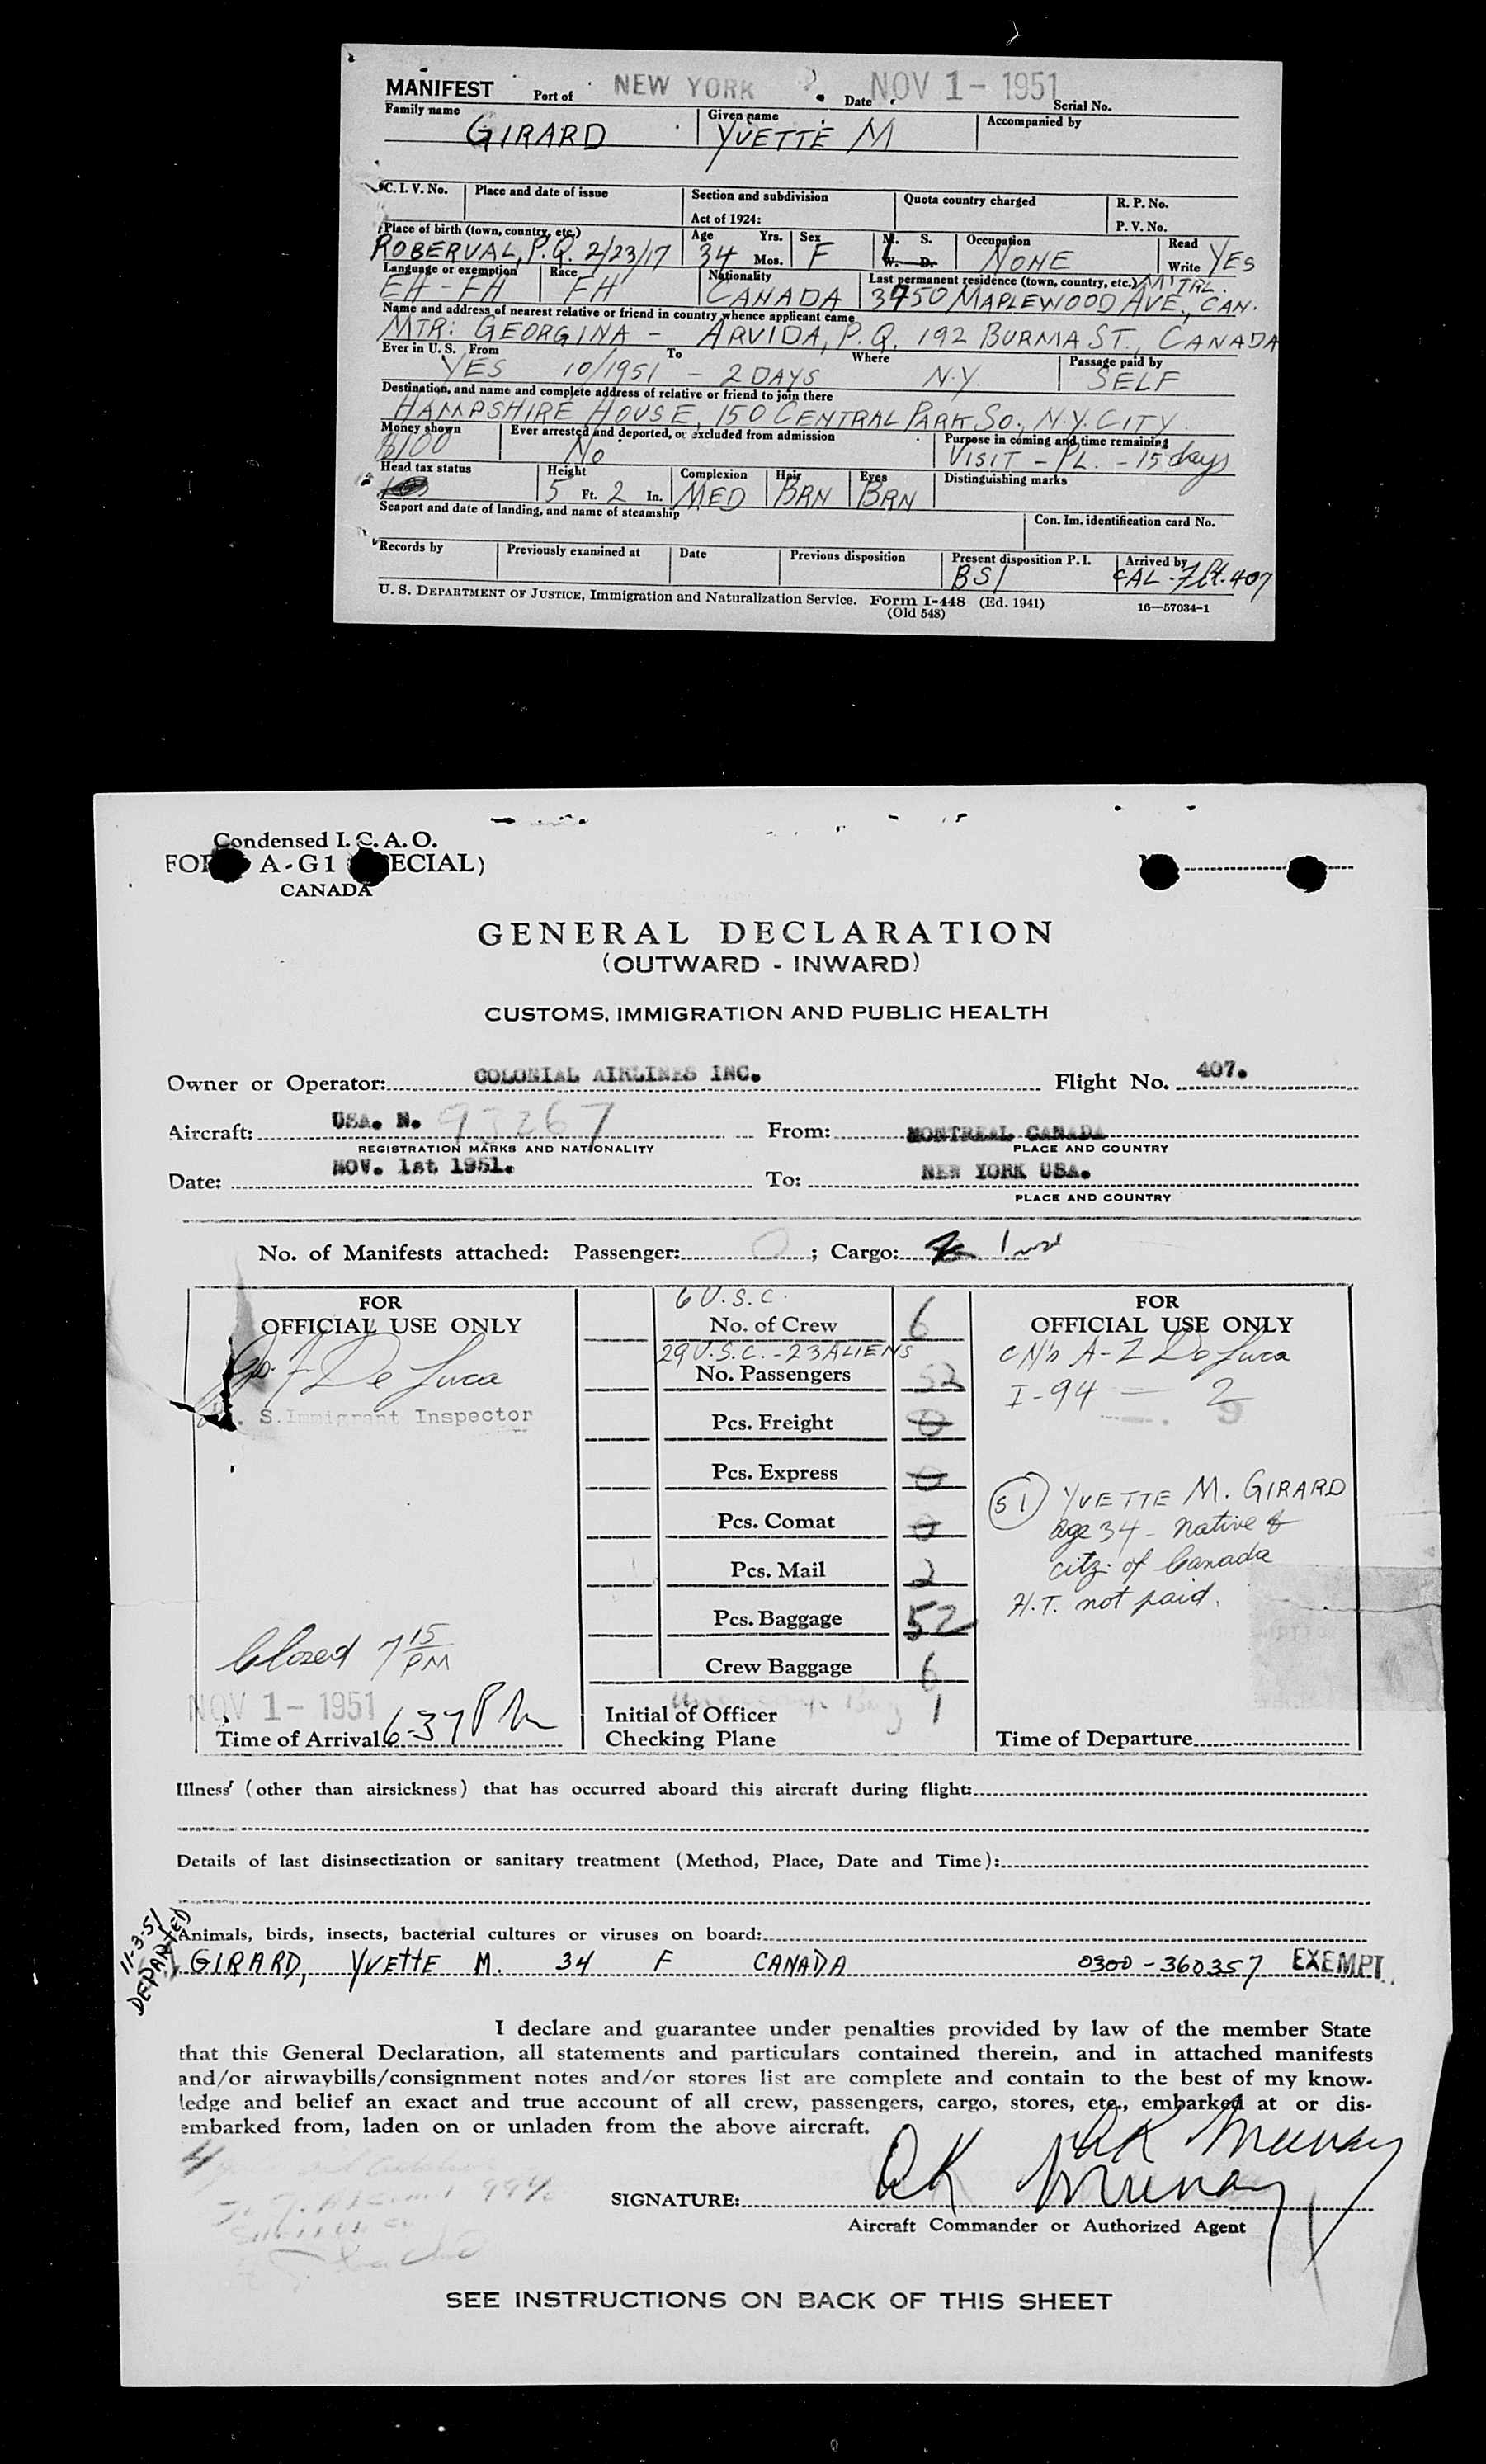 MANIFEST Port of NEW YORK Date NOV 1 - 1951 Serial No.
Family name Given name Accompanied by
GIRARD YVETTE M
C. I. V. No. Place and date of issue Section and subdivision Quota country charged R. P. No.
Act of 1924: P. V. No.
Place of birth (town, country, etc.) Age Yrs. Sex M. S. Occupation Read
ROBERVAL, P.Q. 2/23/17 34 Mos. F W. D. NONE Write YES
Language or exemption Race Nationality Last permanent residence (town, country, etc.) M'TRL.
FH CANADA 3450 MAPLEWOOD AVE., CAN.
Name and address of nearest relative or friend in country whence applicant came
MTR: GEORGINA - ARVIDA, P.Q. 192 BURMA ST., CANADA
Ever in U. S. From To Where Passage paid by
YES 10/1951 - 2 DAYS N.Y. SELF
Destination, and name and complete address of relative or friend to join there
HAMPSHIRE HOUSE, 150 CENTRAL PARK SO., N.Y. CITY
Money shown Ever arrested and deported, or excluded from admission Purpose in coming and time remaining
$100 No VISIT - PL. - 15 days
Head tax status Height Complexion Hair Eyes Distinguishing marks
5 Ft. 2 In. MED BRN BRN
Seaport and date of landing, and name of steamship Con. Im. identification card No.
Records by Previously examined at Date Previous disposition Present disposition P. I. Arrived by
BSI CAL - Flt. 407
U. S. DEPARTMENT OF JUSTICE, Immigration and Naturalization Service. Form I-448 (Ed. 1941) 16—57034-1
(Old 548)
Condensed I. C. A. O.
A-G1 ECIAL)
CANADA
GENERAL DECLARATION
(OUTWARD - INWARD)
CUSTOMS, IMMIGRATION AND PUBLIC HEALTH
Owner or Operator: COLONIAL AIRLINES INC. Flight No. 407.
Aircraft: USA. N. 93267 From: MONTREAL CANADA
REGISTRATION MARKS AND NATIONALITY PLACE AND COUNTRY
Date: NOV. 1st 1951. To: NEW YORK USA.
PLACE AND COUNTRY
No. of Manifests attached: Passenger: 0; Cargo: 1
FOR 6 U.S.C. FOR
OFFICIAL USE ONLY No. of Crew 6 OFFICIAL USE ONLY
De Luca 29 U.S.C. - 23 ALIENS A-Z De Luca
No. Passengers 52 I-94 — 2
S. Immigrant Inspector Pcs. Freight 0 9
Pcs. Express 0 SI YVETTE M. GIRARD
Pcs. Comat 0 age 34 - native &
citz. of Canada
Pcs. Mail 2 H.T. not paid.
Pcs. Baggage 52
Closed 7 15 PM Crew Baggage 6
NOV 1 - 1951 Initial of Officer 1
Time of Arrival 6-37 PM Checking Plane Time of Departure
Illness (other than airsickness) that has occurred aboard this aircraft during flight:
Details of last disinsectization or sanitary treatment (Method, Place, Date and Time):
11-3-51 DEPARTED
Animals, birds, insects, bacterial cultures or viruses on board:
GIRARD, YVETTE M. 34 F CANADA 0300-360357 EXEMPT
I declare and guarantee under penalties provided by law of the member State
that this General Declaration, all statements and particulars contained therein, and in attached manifests
and/or airwaybills/consignment notes and/or stores list are complete and contain to the best of my know-
ledge and belief an exact and true account of all crew, passengers, cargo, stores, etc., embarked at or dis-
embarked from, laden on or unladen from the above aircraft.
SIGNATURE:
Aircraft Commander or Authorized Agent
SEE INSTRUCTIONS ON BACK OF THIS SHEET